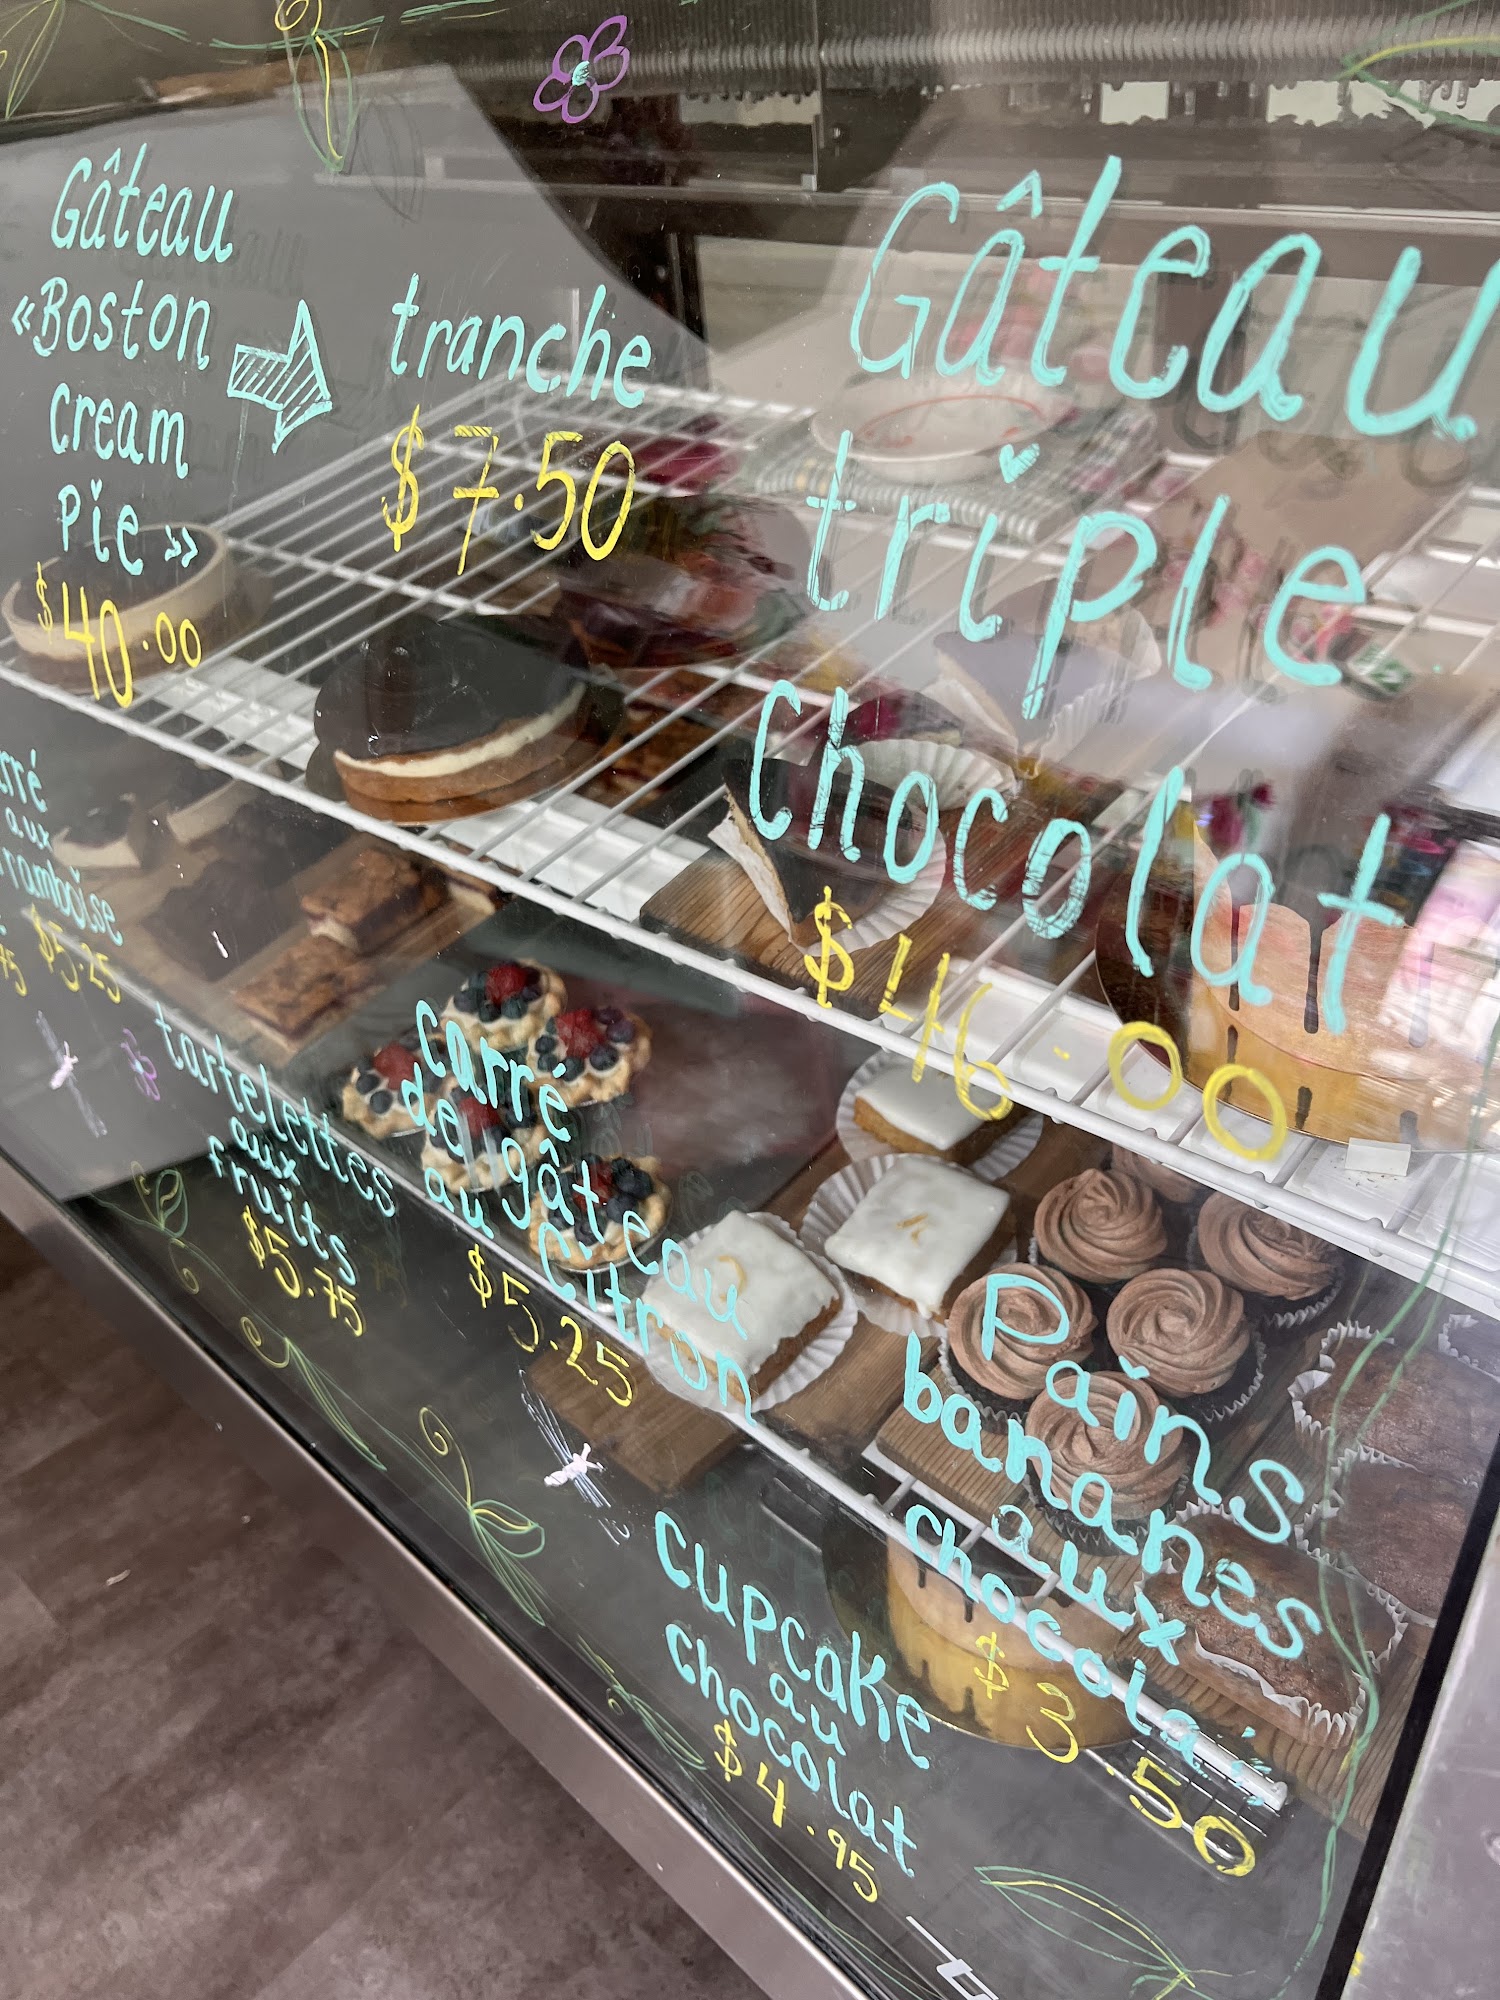 Gâteau
«Boston
cream
Pie»
$40.00
tranche
$7.50
Gâteau
triple
Chocolat
$46.00
aux
$5.25
tartelettes
aux
fruits
$5.75
carré
de gâteau
au citron
$5.25
Pains
bananes
aux
$3.50
cupcake
au
chocolat
$4.95